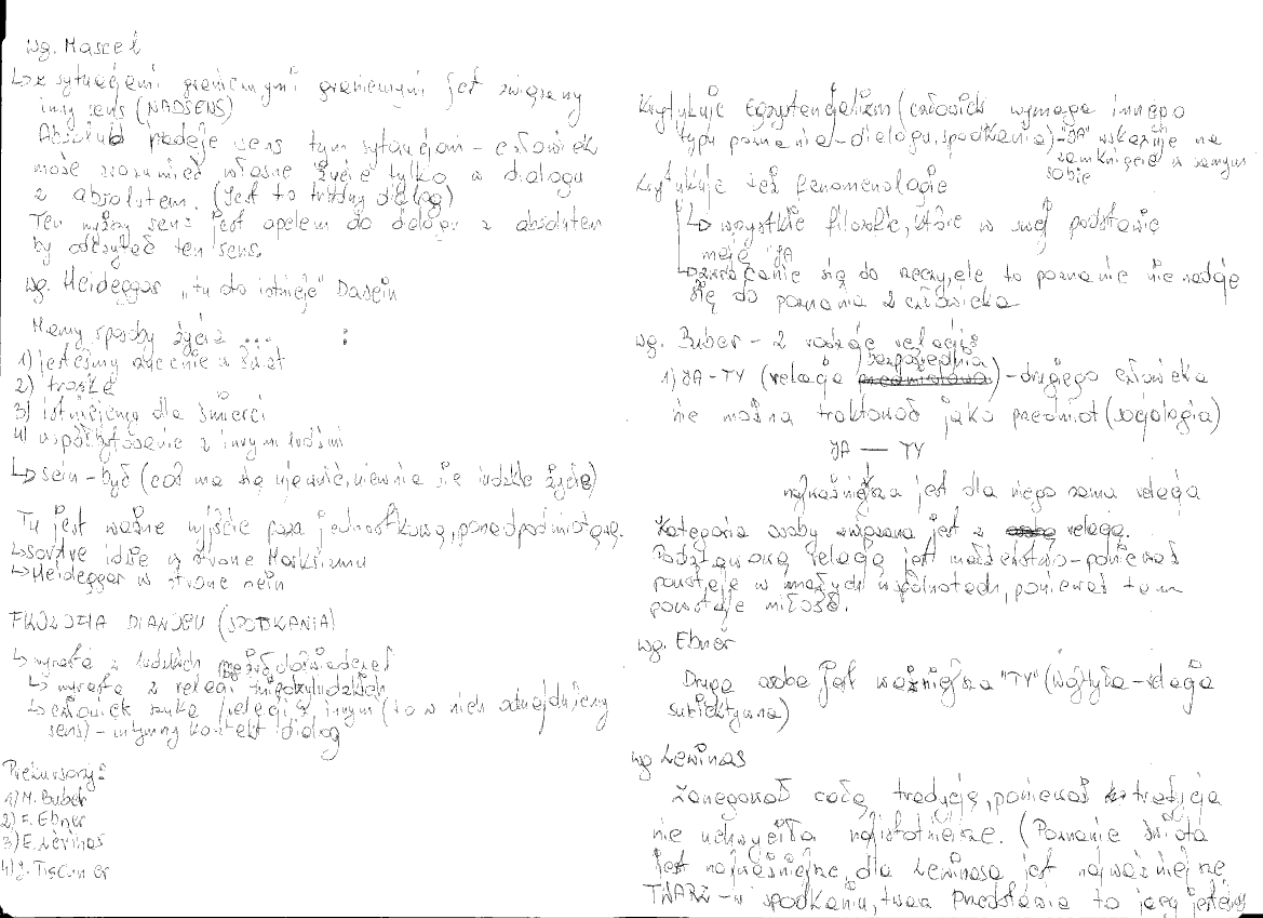 wg. Marcel
↳ z sytuacjami granicznymi granicznymi jest związany
inny sens (NADSENS)
Absolut nadaje sens tym sytuacjom - człowiek
może zrozumieć własne życie tylko w dialogu
z absolutem. (Jest to trudny dialog)
Ten wyższy sens jest apelem do dialogu z absolutem
by odczytać ten sens.
wg. Heidegger „tu oto istnieje" Dasein
Mamy sposoby życia ... :
1) jesteśmy rzuceni w świat
2) troskę
3) istniejemy dla śmierci
4) współbytowanie z innymi ludźmi
↳ sein - być (coś ma się ujawnić, ujawnia się ludzkie życie)
Tu jest ważne wyjście poza jednostkową, ponadpodmiotową.
↳ Sartre idzie w stronę Marksizmu
↳ Heidegger w stronę sein
FILOZOFIA DIALOGU (SPOTKANIA)
↳ wyrasta z ludzkich doświadczeń
↳ wyrasta z relacji międzyludzkich
↳ człowiek szuka relacji z innym (to w nich odnajdujemy
sens) - intymny kontakt dialog
Prekursorzy:
1) M. Buber
2) F. Ebner
3) E. Levinas
4) J. Tischner
Krytykuje Egzystencjalizm (człowiek wymaga innego
typu poznania - dialogu, spotkania) - "JA" wskazuje na
zamknięcie w samym
sobie
Krytykuje też fenomenologie
↳ wszystkie filozofie, które w swej podstawie
mają JA
↳ zwracanie się do rzeczy, ale to poznanie nie nadaje
się do poznania z człowieka
wg. Buber - 2 rodzaje relacji:
bezpośrednia
1) JA - TY (relacja przedmiotowa) - drugiego człowieka
nie można traktować jako przedmiot (socjologia)
JA — TY
najważniejsza jest dla niego sama relacja
Kategoria osoby związana jest z osobą relacją.
Podstawową relacją jest małżeństwo - ponieważ
powstaje w małych wspólnotach, ponieważ tam
powstaje miłość.
wg. Ebner
Druga osoba jest ważniejsza "TY" (Wojtyła - relacja
subiektywna)
wg Lewinas
Zanegował całą tradycję, ponieważ tradycja
nie uchwyciła najistotniejsze. (Poznanie świata
jest najważniejsze, dla Lewinasa jest najważniejsze
TWARZ - w spotkaniu, twarz przedstawia to jacy jesteśmy